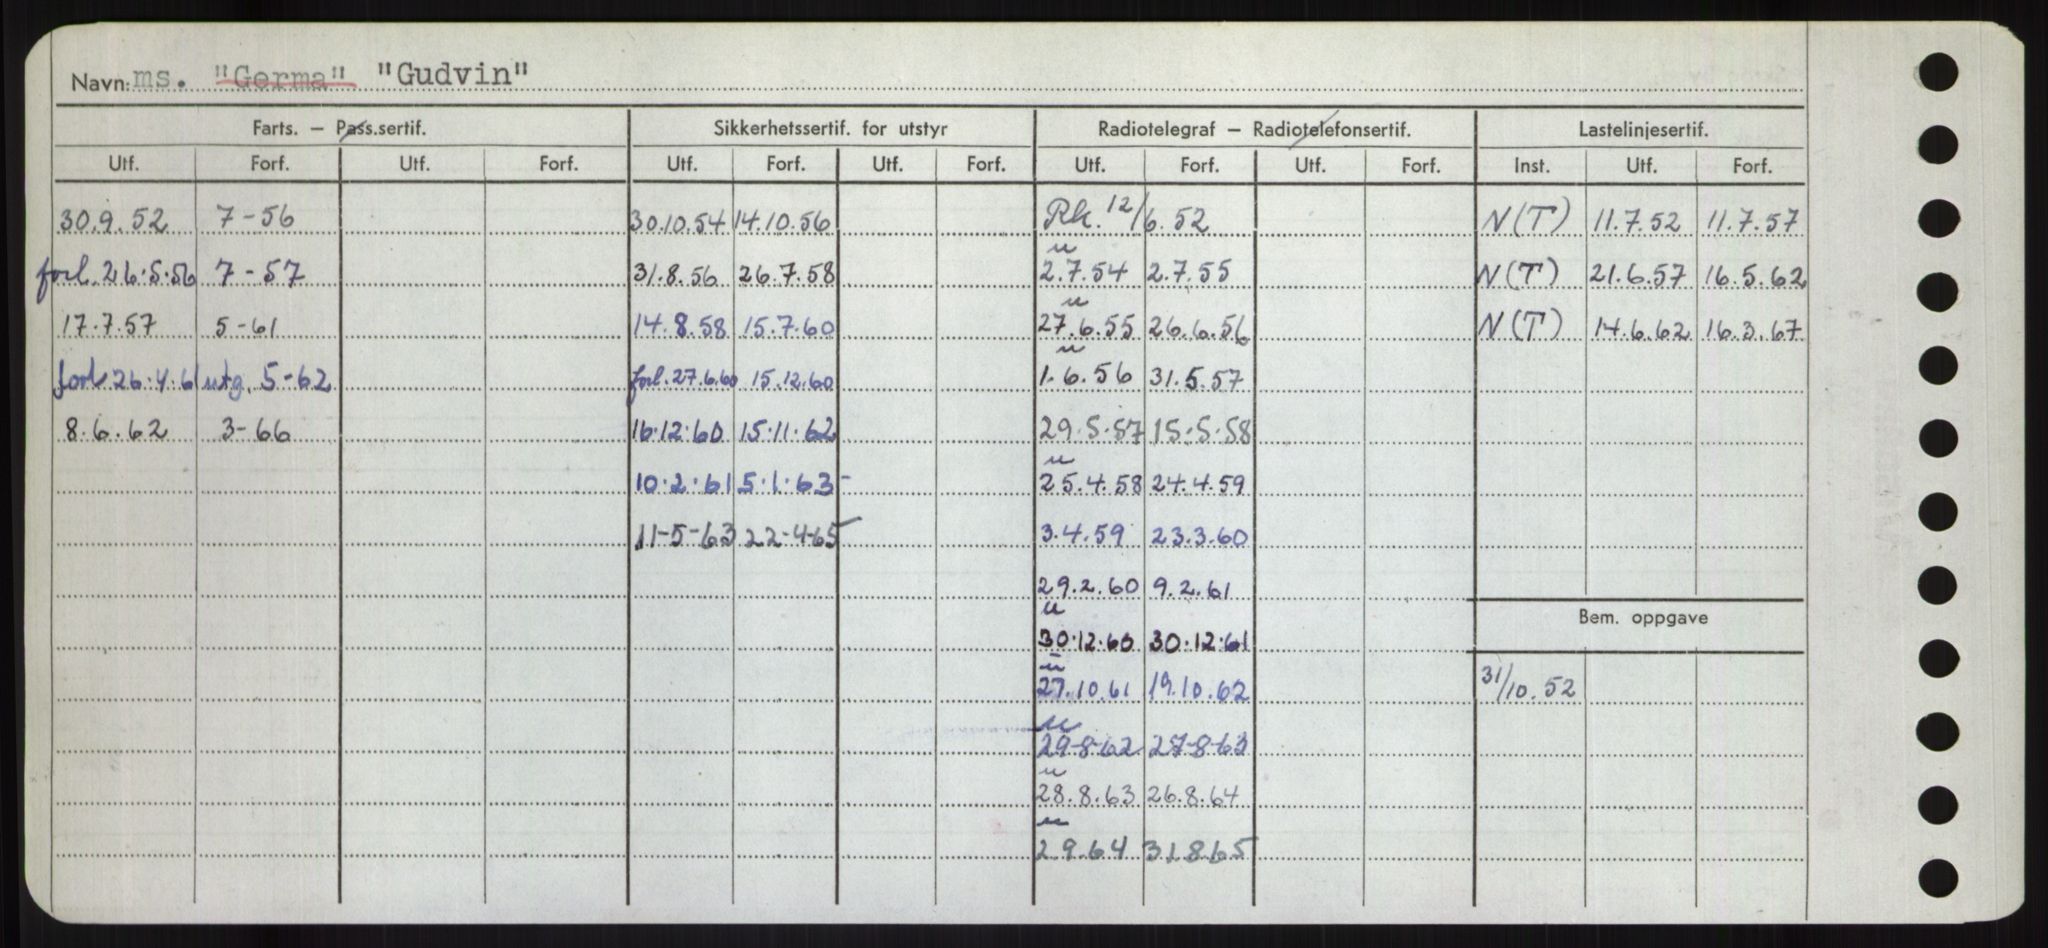 Navn: ms. "Germa" "Gudvin"
Farts. — Pass.sertif. Sikkerhetssertif. for utstyr Radiotelegraf — Radiotelefonsertif. Lastelinjesertif.
Utf. Forf. Utf. Forf. Utf. Forf. Utf. Forf. Utf. Forf. Utf. Forf. Inst. Utf. Forf.
30.9.52 7-56 30.10.54 14.10.56 Rk. 12/6.52 N(T) 11.7.52 11.7.57
u
forl. 26.5.56 7-57 31.8.56 26.7.58 2.7.54 2.7.55 N(T) 21.6.57 16.5.62
u
17.7.57 5-61 14.8.58 15.7.60 27.6.55 26.6.56 N(T) 14.6.62 16.3.67
u
forl 26.4.61 utg. 5-62 forl. 27.6.60 15.12.60 1.6.56 31.5.57
8.6.62 3-66 16.12.60 15.11.62 29.5.57 15.5.58
u
10.2.61 5.1.63- 25.4.58 24.4.59
11-5-63 22-4-65 3.4.59 23.3.60
29.2.60 9.2.61
u
Bem. oppgave
30.12.60 30.12.61
u
27.10.61 19.10.62 31/10.52
u
29-8-62 27-8-63
u
28.8.63 26.8.64
u
2.9.64 31.8.65